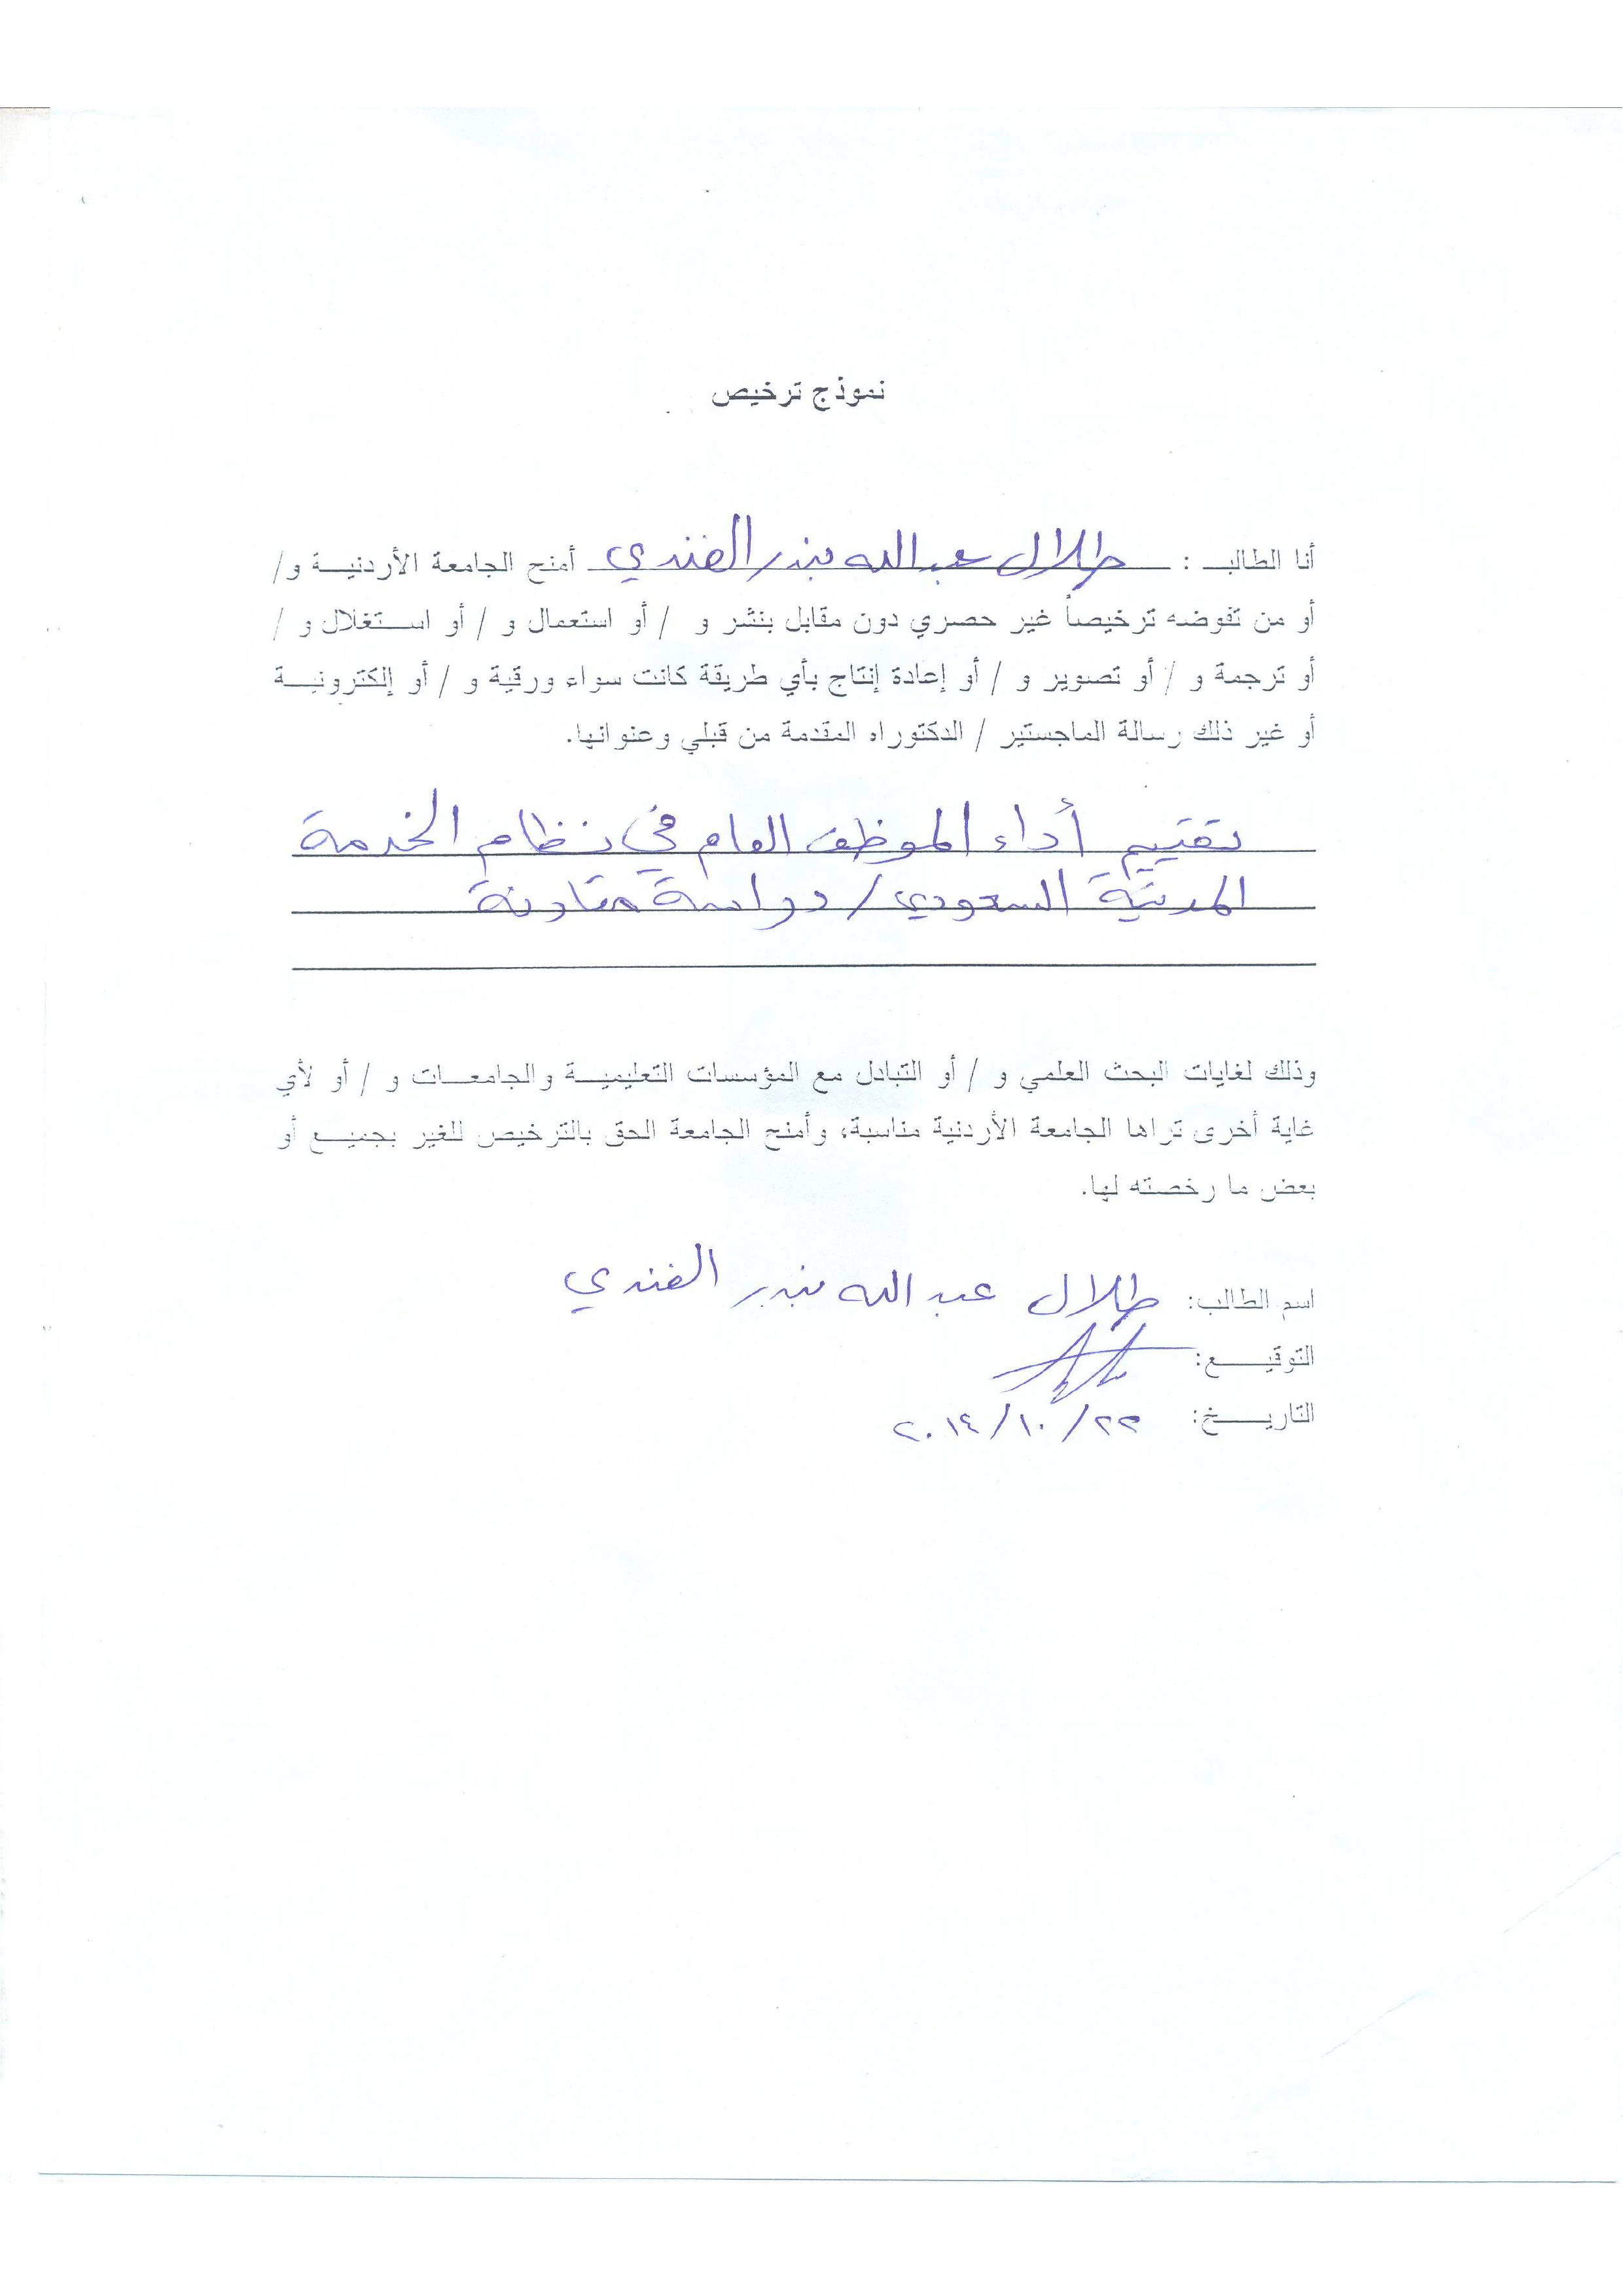 نموذج ترخيص
أنا الطالب : طلال عبدالله بندر الفندي أمنح الجامعة الأردنية و/
أو من تفوضه ترخيصاً غير حصري دون مقابل بنشر و / أو استعمال و / أو استغلال و /
أو ترجمة و / أو تصوير و / أو إعادة إنتاج بأي طريقة كانت سواء ورقية و / أو إلكترونية
أو غير ذلك رسالة الماجستير / الدكتوراه المقدمة من قبلي وعنوانها.
تقييم أداء الموظف العام في نظام الخدمة
المدنية السعودي / دراسة مقارنة
وذلك لغايات البحث العلمي و / أو التبادل مع المؤسسات التعليمية والجامعات و / أو لأي
غاية أخرى تراها الجامعة الأردنية مناسبة، وأمنح الجامعة الحق بالترخيص للغير بجميع أو
بعض ما رخصته لها.
اسم الطالب: طلال عبد الله بندر الفندي
التوقيع:
التاريخ: ٢٣/١٠/٢٠١٤